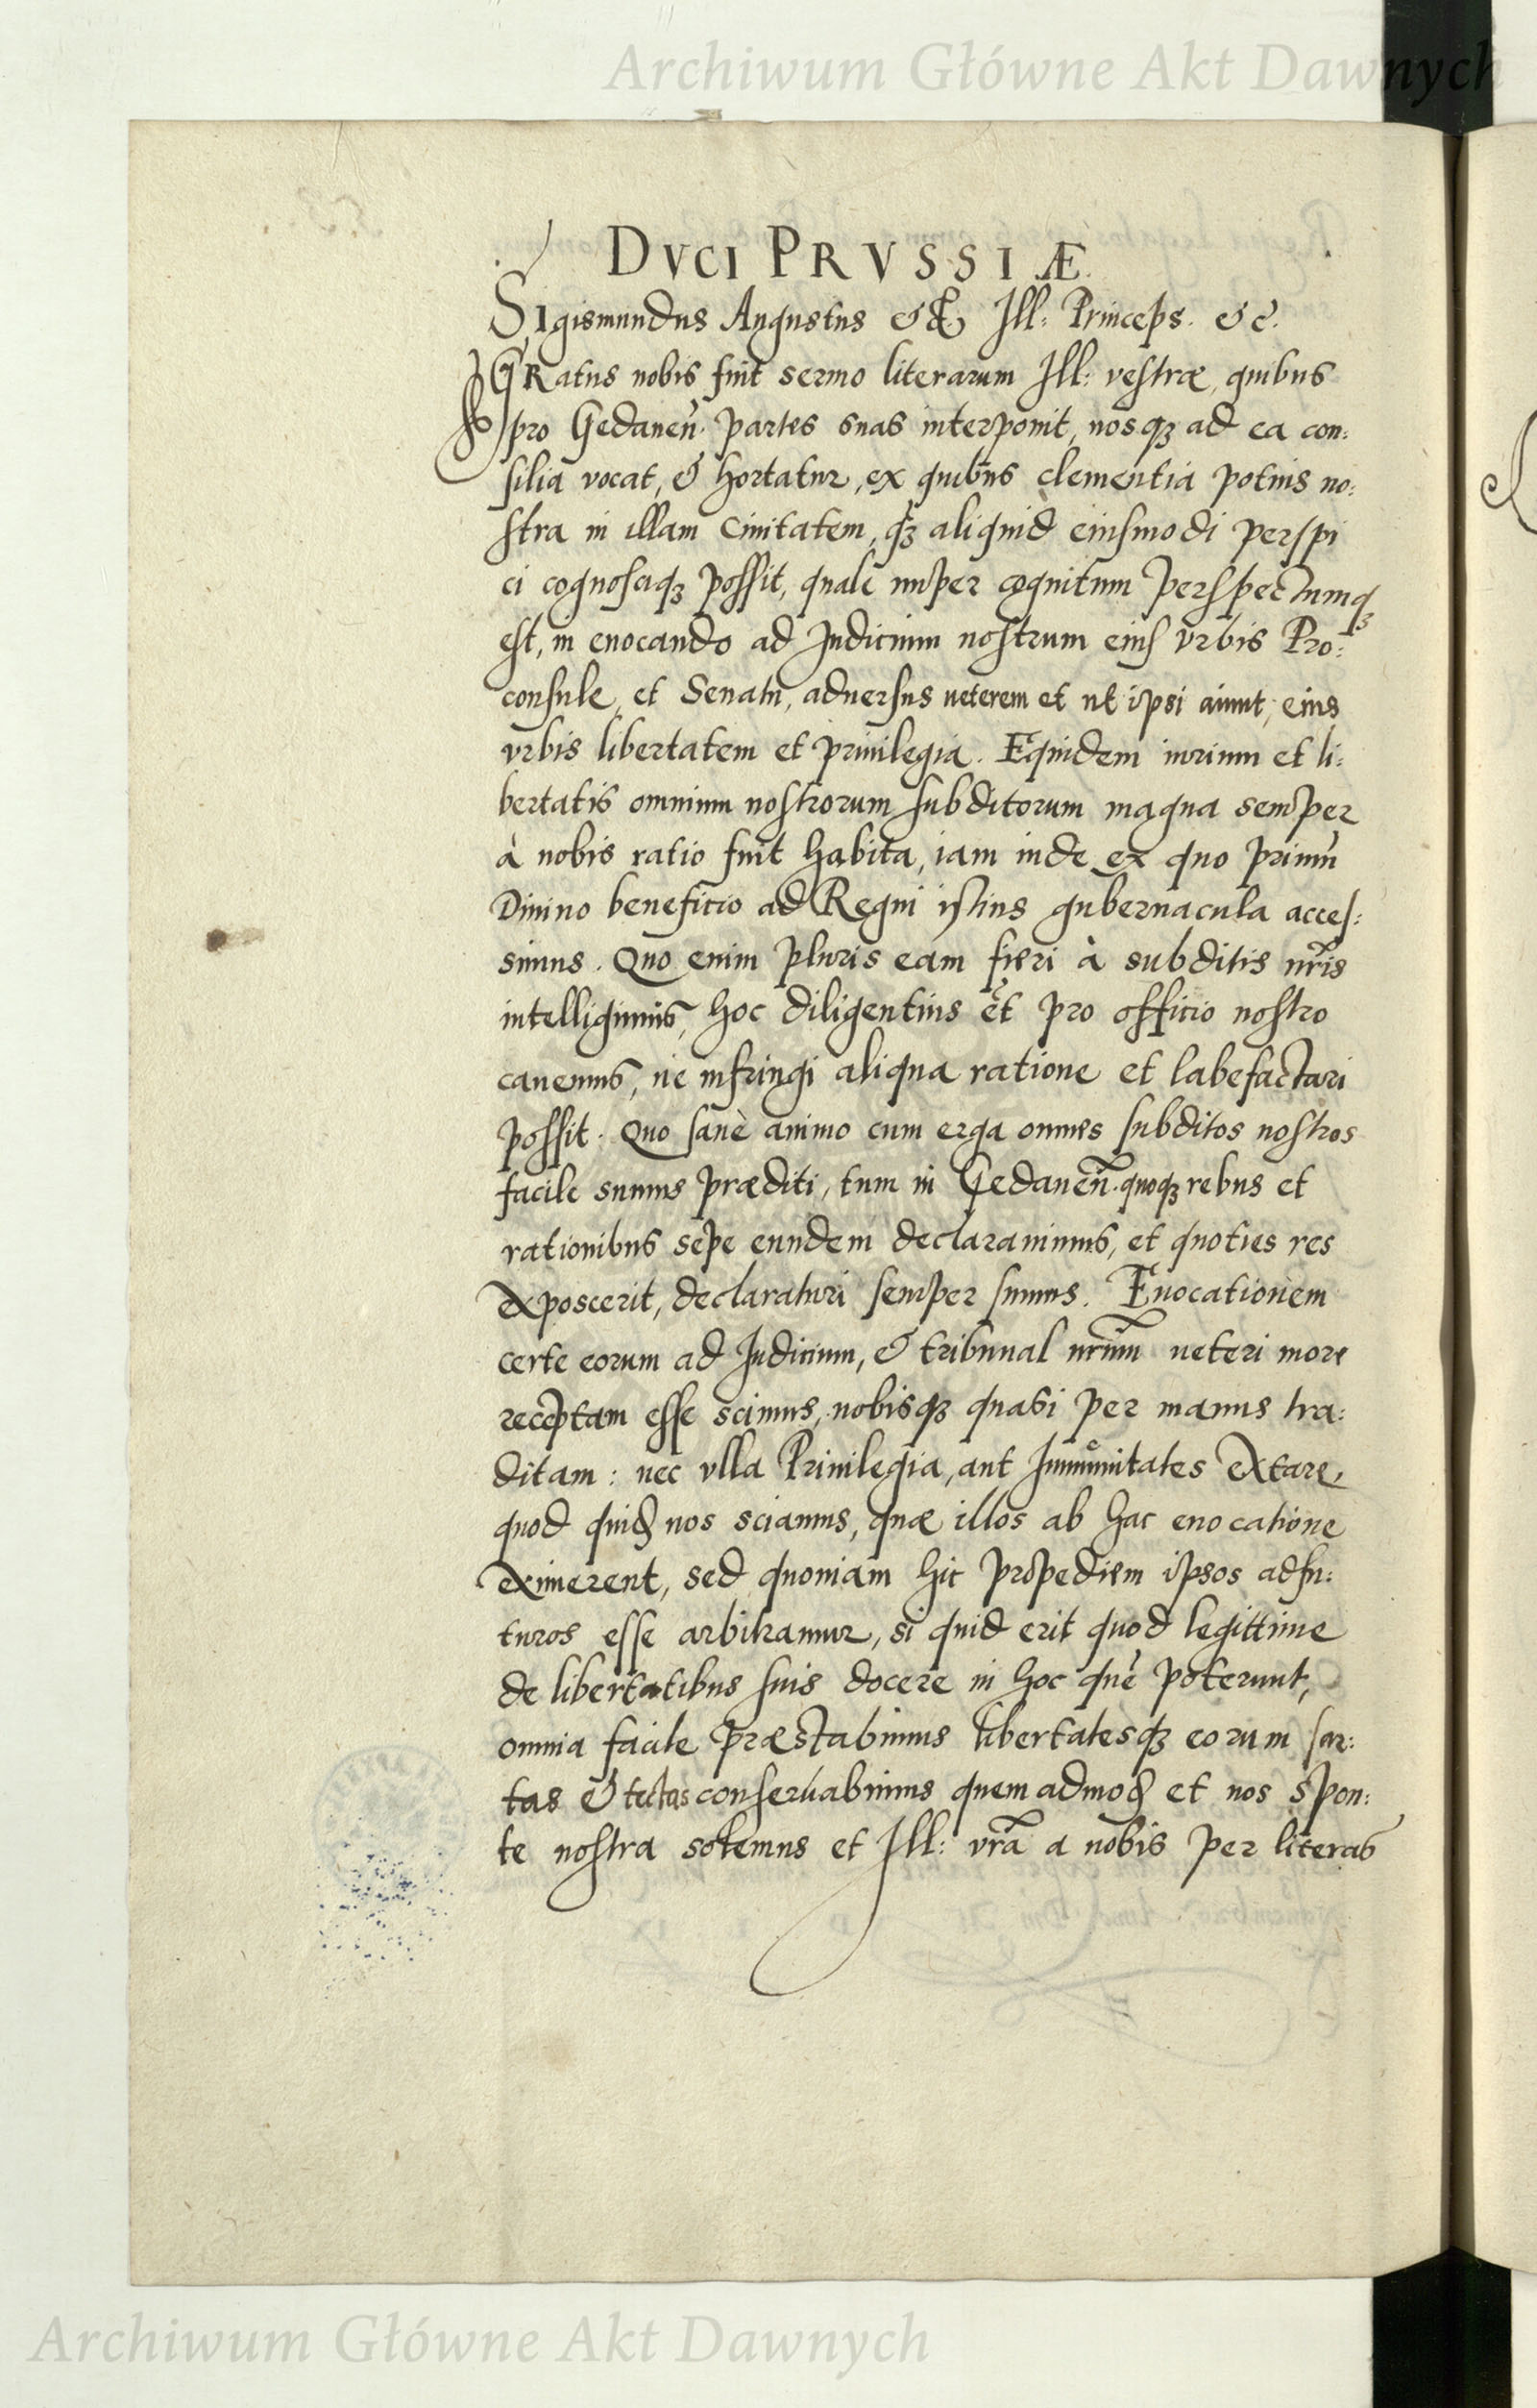 Archiwum Główne Akt Dawnych
DVCI PRVSSIÆ.
SIgismundus Augustus &c Ill: Princeps. &c.
GRatus nobis fuit sermo literarum Ill: vestræ, quibus
pro Gedanen̄. partes suas interponit, nosq₃ ad ea con:
silia vocat, & hortatur, ex quibus clementia potius no:
stra in illam Ciuitatem, q̃₃ aliquid eiusmodi perspi
ci cognosciq₃ possit, quale nuper cognitum perspectumq₃
est, in euocando ad Iudicium nostrum eius vrbis Pro:
consule, et Senatu, aduersus ueterem et ut ipsi aiunt, eius
vrbis libertatem et priuilegia. Equidem iurium et li:
bertatis omnium nostrorum subditorum magna semper
à nobis ratio fuit habita, iam inde ex quo primū
Diuino beneficio ad Regni istius gubernacula acces:
simus. Quo enim pluris eam fieri à subditis nr̃is
intelligimus, hoc diligentius et pro officio nostro
cauemus, ne infringi aliqua ratione et labefactari
possit. Quo sanè animo cum erga omnes subditos nostros
facile sumus præditi, tum in Gedanen̄. quoq₃ rebus et
rationibus sepe eundem declarauimus, et quoties res
exposcerit, declaraturi semper sumus. Euocationem
certe eorum ad Iudicium, & tribunal nr̃um ueteri more
receptam esse scimus, nobisq₃ quasi per manus tra:
ditam: nec vlla Priuilegia, aut Immunitates extare,
quod quidē nos sciamus, quæ illos ab hac euocatione
eximerent, sed quoniam hic propediem ipsos adfu:
turos esse arbitramur, si quid erit quod legittime
de libertatibus suis docere in hoc gñe poterunt,
omnia facile præstabimus libertatesq₃ eorum sar:
tas & tectas conseruabimus quemadmodū et nos spon:
te nostra solemus et Ill: vr̃a a nobis per literas
Archiwum Główne Akt Dawnych